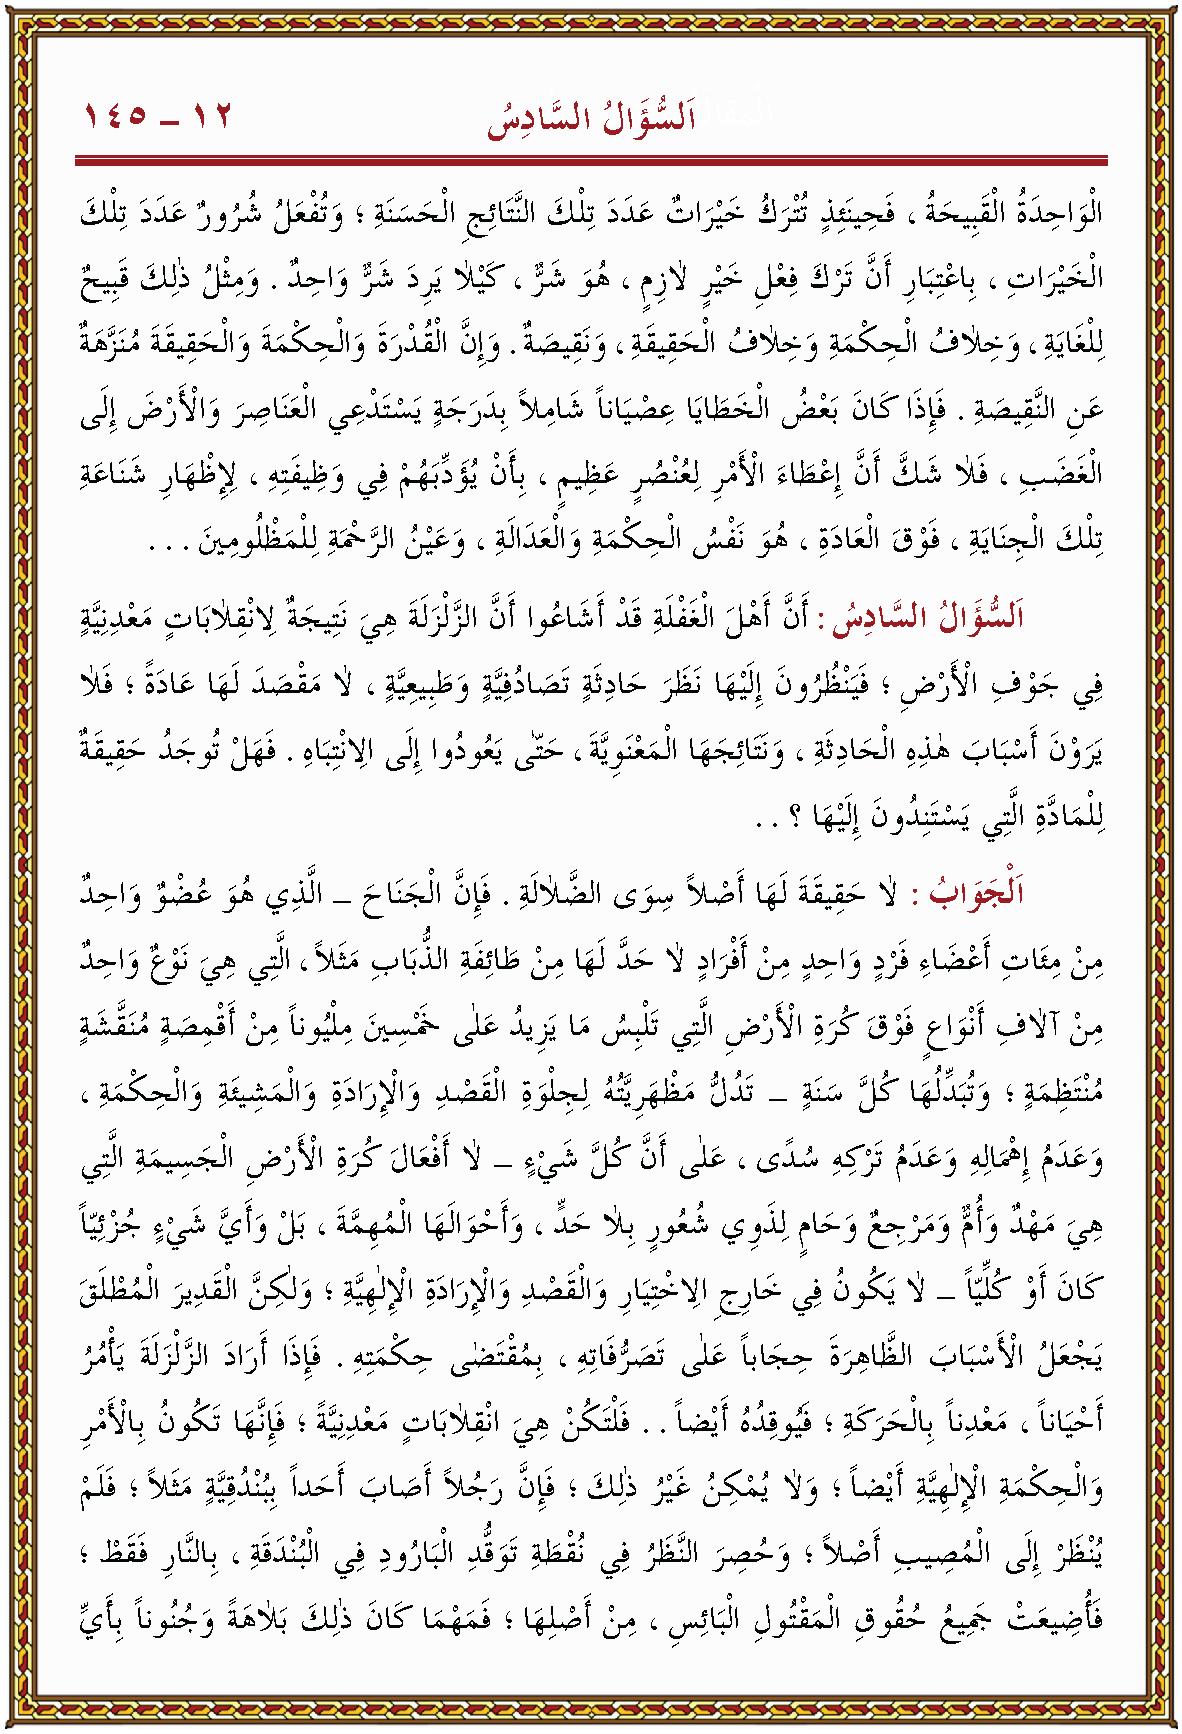 اَلسُّؤَالُ السَّادِسُ ١٢ – ١٤٥
الْوَاحِدَةُ الْقَبِيحَةُ ، فَحِينَئِذٍ تُتْرَكُ خَيْرَاتٌ عَدَدَ تِلْكَ النَّتَائِجِ الْحَسَنَةِ ؛ وَتُفْعَلُ شُرُورٌ عَدَدَ تِلْكَ
الْخَيْرَاتِ ، بِاعْتِبَارِ أَنَّ تَرْكَ فِعْلِ خَيْرٍ لاٰزِمٍ ، هُوَ شَرٌّ ، كَيْلاَ يَرِدَ شَرٌّ وَاحِدٌ . وَمِثْلُ ذٰلِكَ قَبِيحٌ
لِلْغَايَةِ ، وَخِلاٰفُ الْحِكْمَةِ وَخِلاٰفُ الْحَقِيقَةِ ، وَنَقِيصَةٌ . وَإِنَّ الْقُدْرَةَ وَالْحِكْمَةَ وَالْحَقِيقَةَ مُنَزَّهَةٌ
عَنِ النَّقِيصَةِ . فَإِذَا كَانَ بَعْضُ الْخَطَايَا عِصْيَاناً شَامِلاً بِدَرَجَةٍ يَسْتَدْعِي الْعَنَاصِرَ وَالْأَرْضَ إِلَى
الْغَضَبِ ، فَلاٰ شَكَّ أَنَّ إِعْطَاءَ الْأَمْرِ لِعُنْصُرٍ عَظِيمٍ ، بِأَنْ يُؤَدِّبَهُمْ فِي وَظِيفَتِهِ ، لِإِظْهَارِ شَنَاعَةِ
تِلْكَ الْجِنَايَةِ ، فَوْقَ الْعَادَةِ ، هُوَ نَفْسُ الْحِكْمَةِ وَالْعَدَالَةِ ، وَعَيْنُ الرَّحْمَةِ لِلْمَظْلُومِينَ . . .
اَلسُّؤَالُ السَّادِسُ : أَنَّ أَهْلَ الْغَفْلَةِ قَدْ أَشَاعُوا أَنَّ الزَّلْزَلَةَ هِيَ نَتِيجَةٌ لِانْقِلاٰبَاتٍ مَعْدِنِيَّةٍ
فِي جَوْفِ الْأَرْضِ ؛ فَيَنْظُرُونَ إِلَيْهَا نَظَرَ حَادِثَةٍ تَصَادُفِيَّةٍ وَطَبِيعِيَّةٍ ، لاٰ مَقْصَدَ لَهَا عَادَةً ؛ فَلاٰ
يَرَوْنَ أَسْبَابَ هٰذِهِ الْحَادِثَةِ ، وَنَتَائِجَهَا الْمَعْنَوِيَّةَ ، حَتّٰى يَعُودُوا إِلَى الِانْتِبَاهِ . فَهَلْ تُوجَدُ حَقِيقَةٌ
لِلْمَادَّةِ الَّتِي يَسْتَنِدُونَ إِلَيْهَا ؟ . .
اَلْجَوَابُ : لاٰ حَقِيقَةَ لَهَا أَصْلاً سِوَى الضَّلاٰلَةِ . فَإِنَّ الْجَنَاحَ – الَّذِي هُوَ عُضْوٌ وَاحِدٌ
مِنْ مِئَاتِ أَعْضَاءِ فَرْدٍ وَاحِدٍ مِنْ أَفْرَادٍ لاٰ حَدَّ لَهَا مِنْ طَائِفَةِ الذُّبَابِ مَثَلاً ، الَّتِي هِيَ نَوْعٌ وَاحِدٌ
مِنْ آلاٰفِ أَنْوَاعٍ فَوْقَ كُرَةِ الْأَرْضِ الَّتِي تَلْبِسُ مَا يَزِيدُ عَلٰى خَمْسِينَ مِلْيُوناً مِنْ أَقْمِصَةٍ مُنَقَّشَةٍ
مُنْتَظِمَةٍ ؛ وَتُبَدِّلُهَا كُلَّ سَنَةٍ – تَدُلُّ مَظْهَرِيَّتُهُ لِجِلْوَةِ الْقَصْدِ وَالْإِرَادَةِ وَالْمَشِيئَةِ وَالْحِكْمَةِ ،
وَعَدَمُ إِهْمَالِهِ وَعَدَمُ تَرْكِهِ سُدًى ، عَلٰى أَنَّ كُلَّ شَيْءٍ – لاٰ أَفْعَالَ كُرَةِ الْأَرْضِ الْجَسِيمَةِ الَّتِي
هِيَ مَهْدٌ وَأُمٌّ وَمَرْجِعٌ وَحَامٍ لِذَوِي شُعُورٍ بِلاٰ حَدٍّ ، وَأَحْوَالَهَا الْمُهِمَّةَ ، بَلْ وَأَيَّ شَيْءٍ جُزْئِيّاً
كَانَ أَوْ كُلِّيّاً – لاٰ يَكُونُ فِي خَارِجِ الِاخْتِيَارِ وَالْقَصْدِ وَالْإِرَادَةِ الْإِلٰهِيَّةِ ؛ وَلٰكِنَّ الْقَدِيرَ الْمُطْلَقَ
يَجْعَلُ الْأَسْبَابَ الظَّاهِرَةَ حِجَاباً عَلٰى تَصَرُّفَاتِهِ ، بِمُقْتَضٰى حِكْمَتِهِ . فَإِذَا أَرَادَ الزَّلْزَلَةَ يَأْمُرُ
أَحْيَاناً ، مَعْدِناً بِالْحَرَكَةِ ؛ فَيُوقِدُهُ أَيْضاً . . فَلْتَكُنْ هِيَ انْقِلاٰبَاتٍ مَعْدِنِيَّةً ؛ فَإِنَّهَا تَكُونُ بِالْأَمْرِ
وَالْحِكْمَةِ الْإِلٰهِيَّةِ أَيْضاً ؛ وَلاٰ يُمْكِنُ غَيْرُ ذٰلِكَ ؛ فَإِنَّ رَجُلاً أَصَابَ أَحَداً بِبُنْدُقِيَّةٍ مَثَلاً ؛ فَلَمْ
يُنْظَرْ إِلَى الْمُصِيبِ أَصْلاً ؛ وَحُصِرَ النَّظَرُ فِي نُقْطَةِ تَوَقُّدِ الْبَارُودِ فِي الْبُنْدَقَةِ ، بِالنَّارِ فَقَطْ ؛
فَأُضِيعَتْ جَمِيعُ حُقُوقِ الْمَقْتُولِ الْبَائِسِ ، مِنْ أَصْلِهَا ؛ فَمَهْمَا كَانَ ذٰلِكَ بَلاٰهَةً وَجُنُوناً بِأَيِّ